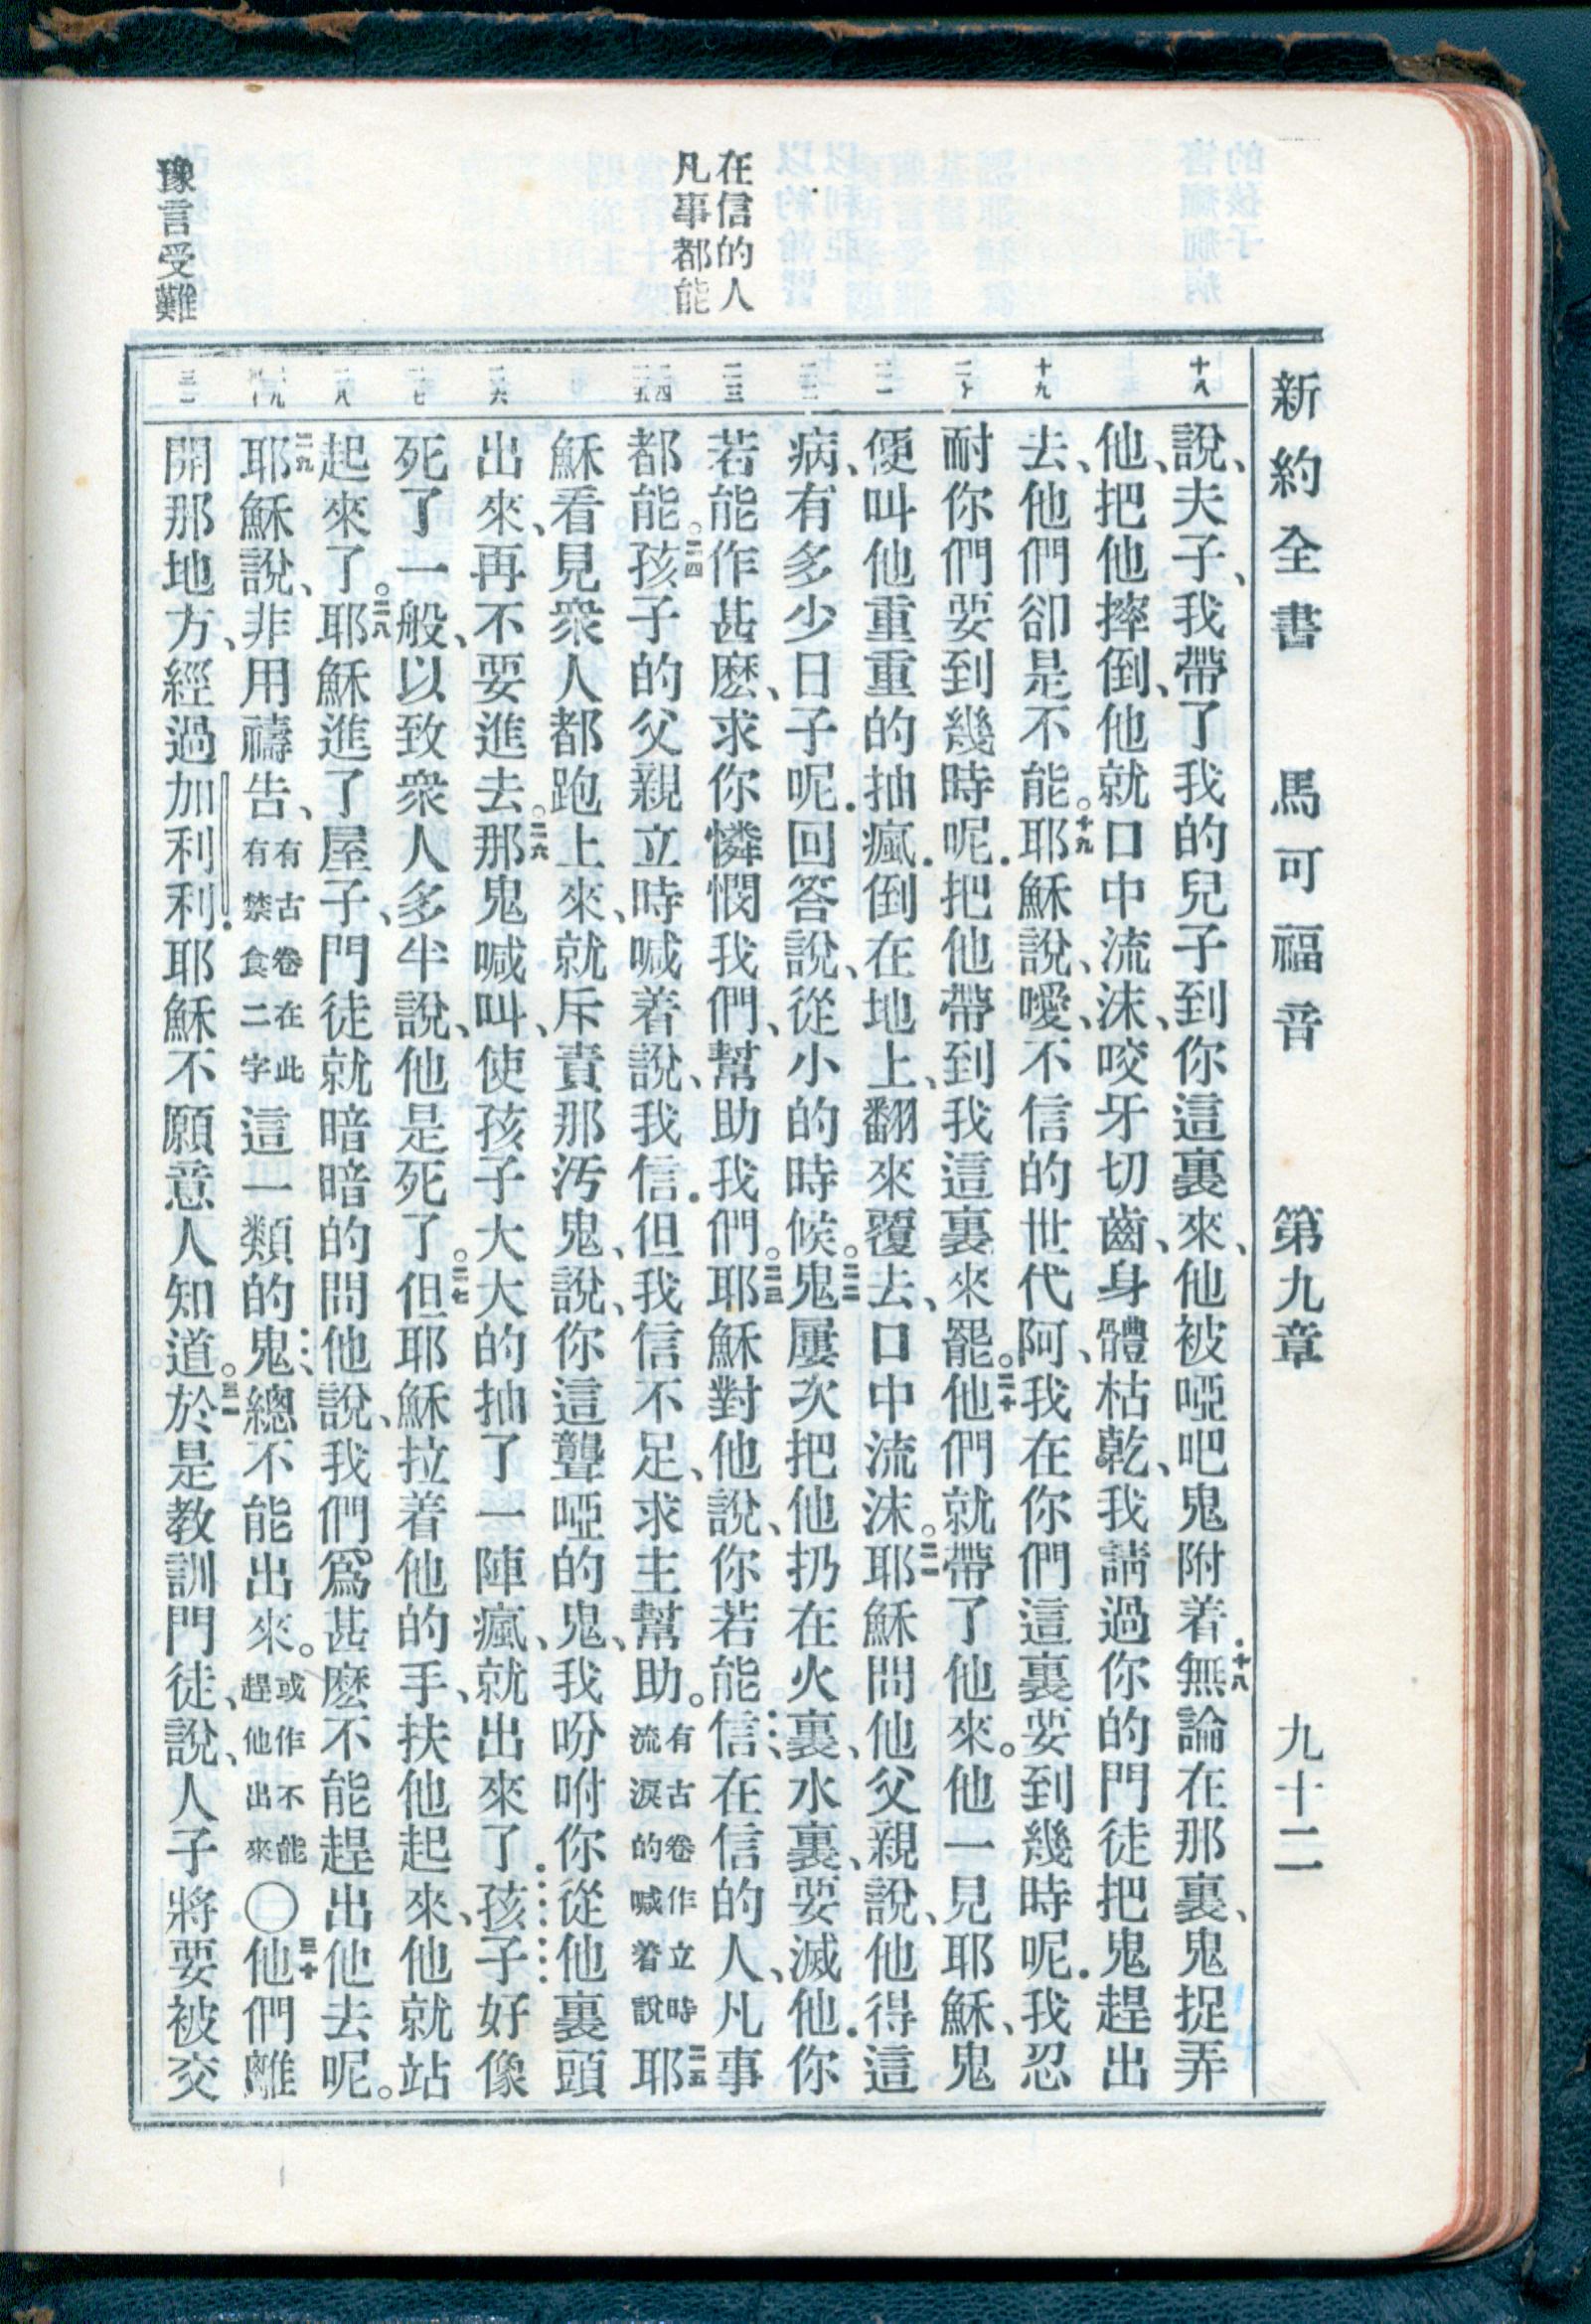 新約全書 馬可福音 第九章 九十二
在信的人
凡事都能
豫言受難
十八
十九
二十
二一
二二
二三
二四
二五
二六
二七
二八
二九
三十
三一
說、夫子、我帶了我的兒子到你這裏來、他被啞吧鬼附着．十八無論在那裏、鬼捉弄
他、把他摔倒、他就口中流沫、咬牙切齒、身體枯乾、我請過你的門徒把鬼趕出
去、他們卻是不能。十九耶穌說、噯、不信的世代阿、我在你們這裏要到幾時呢．我忍
耐你們要到幾時呢．把他帶到我這裏來罷。二十他們就帶了他來。他一見耶穌、鬼
便叫他重重的抽瘋．倒在地上、翻來覆去、口中流沫。二一耶穌問他父親說、他得這
病、有多少日子呢．回答說、從小的時候。二二鬼屢次把他扔在火裏、水裏、要滅他．你
若能作甚麽、求你憐憫我們、幫助我們。二三耶穌對他說、你若能信、在信的人、凡事
都能。二四孩子的父親立時喊着說、我信．但我信不足、求主幫助。有古卷作立時流淚的喊着說二五耶
穌看見衆人都跑上來、就斥責那汚鬼、說、你這聾啞的鬼、我吩咐你從他裏頭
出來、再不要進去。二六那鬼喊叫、使孩子大大的抽了一陣瘋、就出來了．孩子好像
死了一般、以致衆人多半說、他是死了。二七但耶穌拉着他的手、扶他起來、他就站
起來了。二八耶穌進了屋子、門徒就暗暗的問他說、我們爲甚麽不能趕出他去呢。
二九耶穌說、非用禱告、有古卷在此有禁食二字這一類的鬼、總不能出來。或作不能趕他出來〇三十他們離
開那地方、經過加利利．耶穌不願意人知道。三一於是教訓門徒、說、人子將要被交